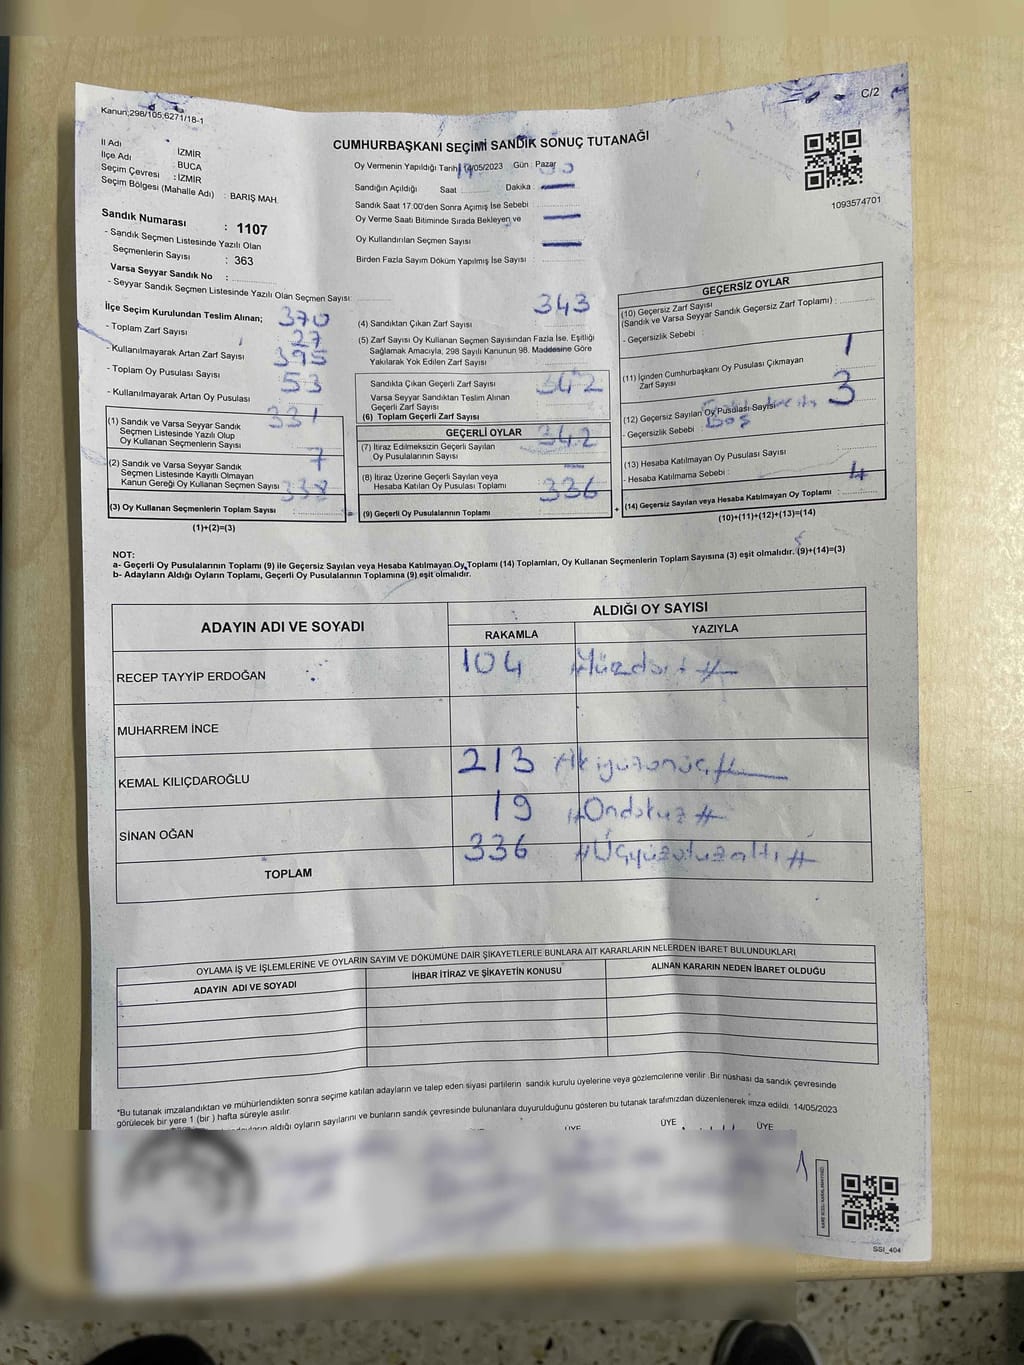 Kanun;298/105,6271/18-1
C/2
CUMHURBAŞKANI SEÇİMİ SANDIK SONUÇ TUTANAĞI
İl Adı İZMİR
İlçe Adı BUCA
Seçim Çevresi : İZMİR
Seçim Bölgesi (Mahalle Adı) : BARIŞ MAH.
Sandık Numarası : 1107
- Sandık Seçmen Listesinde Yazılı Olan
Seçmenlerin Sayısı : 363
Varsa Seyyar Sandık No :
- Seyyar Sandık Seçmen Listesinde Yazılı Olan Seçmen Sayısı:
Oy Vermenin Yapıldığı Tarih 14/05/2023 Gün : Pazar
Sandığın Açıldığı Saat Dakika :
Sandık Saat 17:00'den Sonra Açımış İse Sebebi
Oy Verme Saati Bitiminde Sırada Bekleyen ve
Oy Kullandırılan Seçmen Sayısı
Birden Fazla Sayım Döküm Yapılmış İse Sayısı :
1093574701
İlçe Seçim Kurulundan Teslim Alınan;
- Toplam Zarf Sayısı 370
- Kullanılmayarak Artan Zarf Sayısı 27
- Toplam Oy Pusulası Sayısı 395
- Kullanılmayarak Artan Oy Pusulası 53
(1) Sandık ve Varsa Seyyar Sandık
Seçmen Listesinde Yazılı Olup
Oy Kullanan Seçmenlerin Sayısı 331
(2) Sandık ve Varsa Seyyar Sandık
Seçmen Listesinde Kayıtlı Olmayan
Kanun Gereği Oy Kullanan Seçmen Sayısı 7
(3) Oy Kullanan Seçmenlerin Toplam Sayısı 338
(1)+(2)=(3)
(4) Sandıktan Çıkan Zarf Sayısı 343
(5) Zarf Sayısı Oy Kullanan Seçmen Sayısından Fazla İse, Eşitliği
Sağlamak Amacıyla; 298 Sayılı Kanunun 98. Maddesine Göre
Yakılarak Yok Edilen Zarf Sayısı
Sandıkta Çıkan Geçerli Zarf Sayısı 342
Varsa Seyyar Sandıktan Teslim Alınan
Geçerli Zarf Sayısı
(6) Toplam Geçerli Zarf Sayısı
GEÇERLİ OYLAR
(7) İtiraz Edilmeksizin Geçerli Sayılan
Oy Pusulalarının Sayısı 342
(8) İtiraz Üzerine Geçerli Sayılan veya
Hesaba Katılan Oy Pusulası Toplamı
(9) Geçerli Oy Pusulalarının Toplamı 336
GEÇERSİZ OYLAR
(10) Geçersiz Zarf Sayısı
(Sandık ve Varsa Seyyar Sandık Geçersiz Zarf Toplamı) :
- Geçersizlik Sebebi :
(11) İçinden Cumhurbaşkanı Oy Pusulası Çıkmayan
Zarf Sayısı 1
(12) Geçersiz Sayılan Oy Pusulası Sayısı 3
- Geçersizlik Sebebi : Boş
(13) Hesaba Katılmayan Oy Pusulası Sayısı
- Hesaba Katılmama Sebebi :
(14) Geçersiz Sayılan veya Hesaba Katılmayan Oy Toplamı : 4
(10)+(11)+(12)+(13)=(14)
NOT:
a- Geçerli Oy Pusulalarının Toplamı (9) ile Geçersiz Sayılan veya Hesaba Katılmayan Oy Toplamı (14) Toplamları, Oy Kullanan Seçmenlerin Toplam Sayısına (3) eşit olmalıdır. (9)+(14)=(3)
b- Adayların Aldığı Oyların Toplamı, Geçerli Oy Pusulalarının Toplamına (9) eşit olmalıdır.
ADAYIN ADI VE SOYADI ALDIĞI OY SAYISI
RAKAMLA YAZIYLA
RECEP TAYYİP ERDOĞAN 104 #Yüzdört#
MUHARREM İNCE
KEMAL KILIÇDAROĞLU 213 #İkiyüzonüç#
SİNAN OĞAN 19 #Ondokuz#
TOPLAM 336 #Üçyüzotuzaltı#
OYLAMA İŞ VE İŞLEMLERİNE VE OYLARIN SAYIM VE DÖKÜMÜNE DAİR ŞİKAYETLERLE BUNLARA AİT KARARLARIN NELERDEN İBARET BULUNDUKLARI
ADAYIN ADI VE SOYADI İHBAR İTİRAZ VE ŞİKAYETİN KONUSU ALINAN KARARIN NEDEN İBARET OLDUĞU
*Bu tutanak imzalandıktan ve mühürlendikten sonra seçime katılan adayların ve talep eden siyasi partilerin sandık kurulu üyelerine veya gözlemcilerine verilir .Bir nüshası da sandık çevresinde
görülecek bir yere 1 (bir ) hafta süreyle asılır.
aldığı oyların sayılarını ve bunların sandık çevresinde bulunanlara duyurulduğunu gösteren bu tutanak tarafımızdan düzenlenerek imza edildi. 14/05/2023
ÜYE ÜYE ÜYE
SSI_404